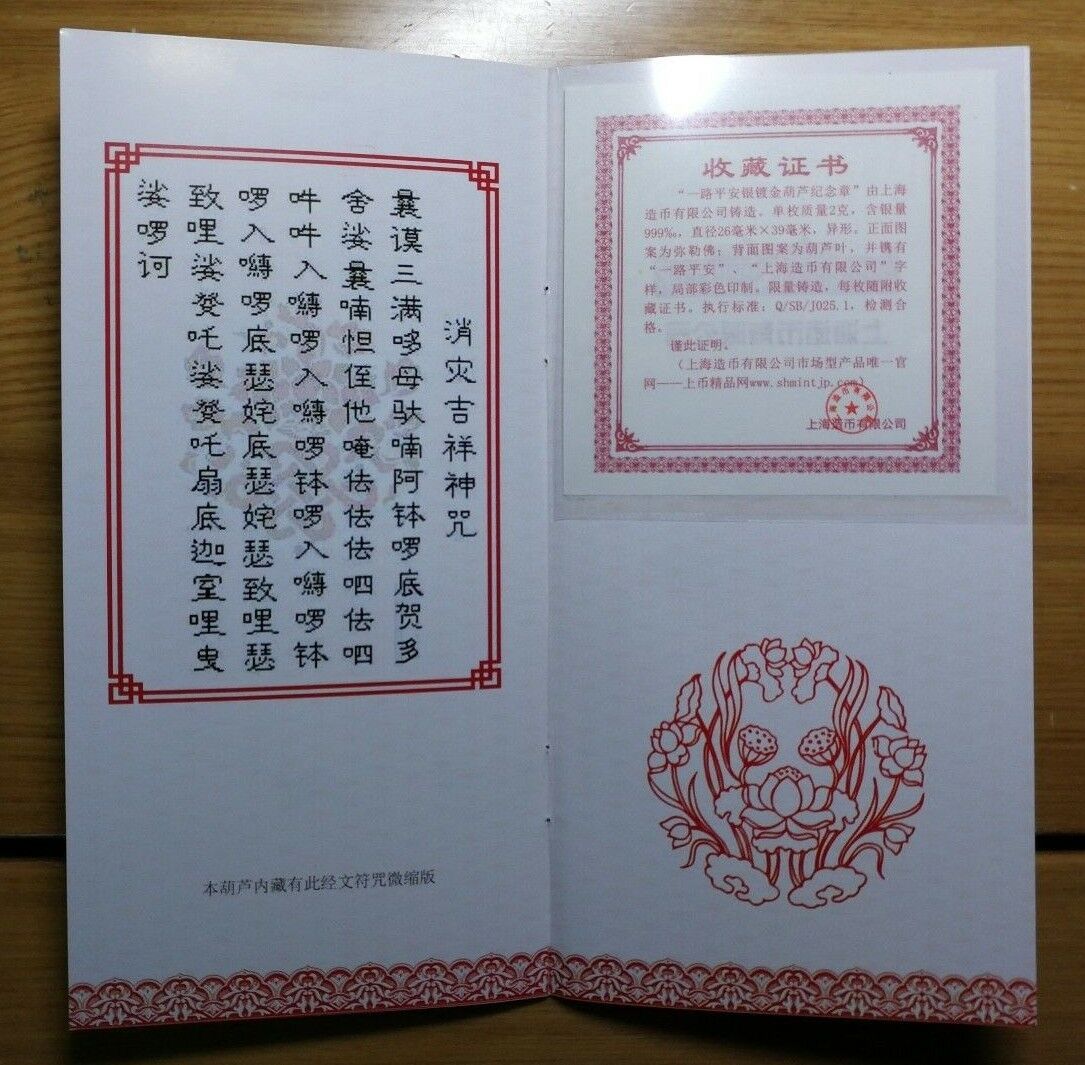 消灾吉祥神咒
曩谟三满哆母驮喃阿钵啰底贺多
舍娑曩喃怛侄他唵佉佉佉呬佉呬
吽吽入嚩啰入嚩啰钵啰入嚩啰钵
啰入嚩啰底瑟姹底瑟姹瑟致哩瑟
致哩娑癹吒娑癹吒扇底迦室哩曳
娑啰诃
本葫芦内藏有此经文符咒微缩版
收藏证书
“一路平安银镀金葫芦纪念章”由上海
造币有限公司铸造。单枚质量2克，含银量
999‰，直径26毫米×39毫米，异形。正面图
案为弥勒佛；背面图案为葫芦叶，并镌有
“一路平安”、“上海造币有限公司”字
样，局部彩色印制。限量铸造，每枚随附收
藏证书。执行标准：Q/SB/J025.1，检测合
格。
谨此证明。
（上海造币有限公司市场型产品唯一官
网——上币精品网www.shmintjp.com）
上海造币有限公司